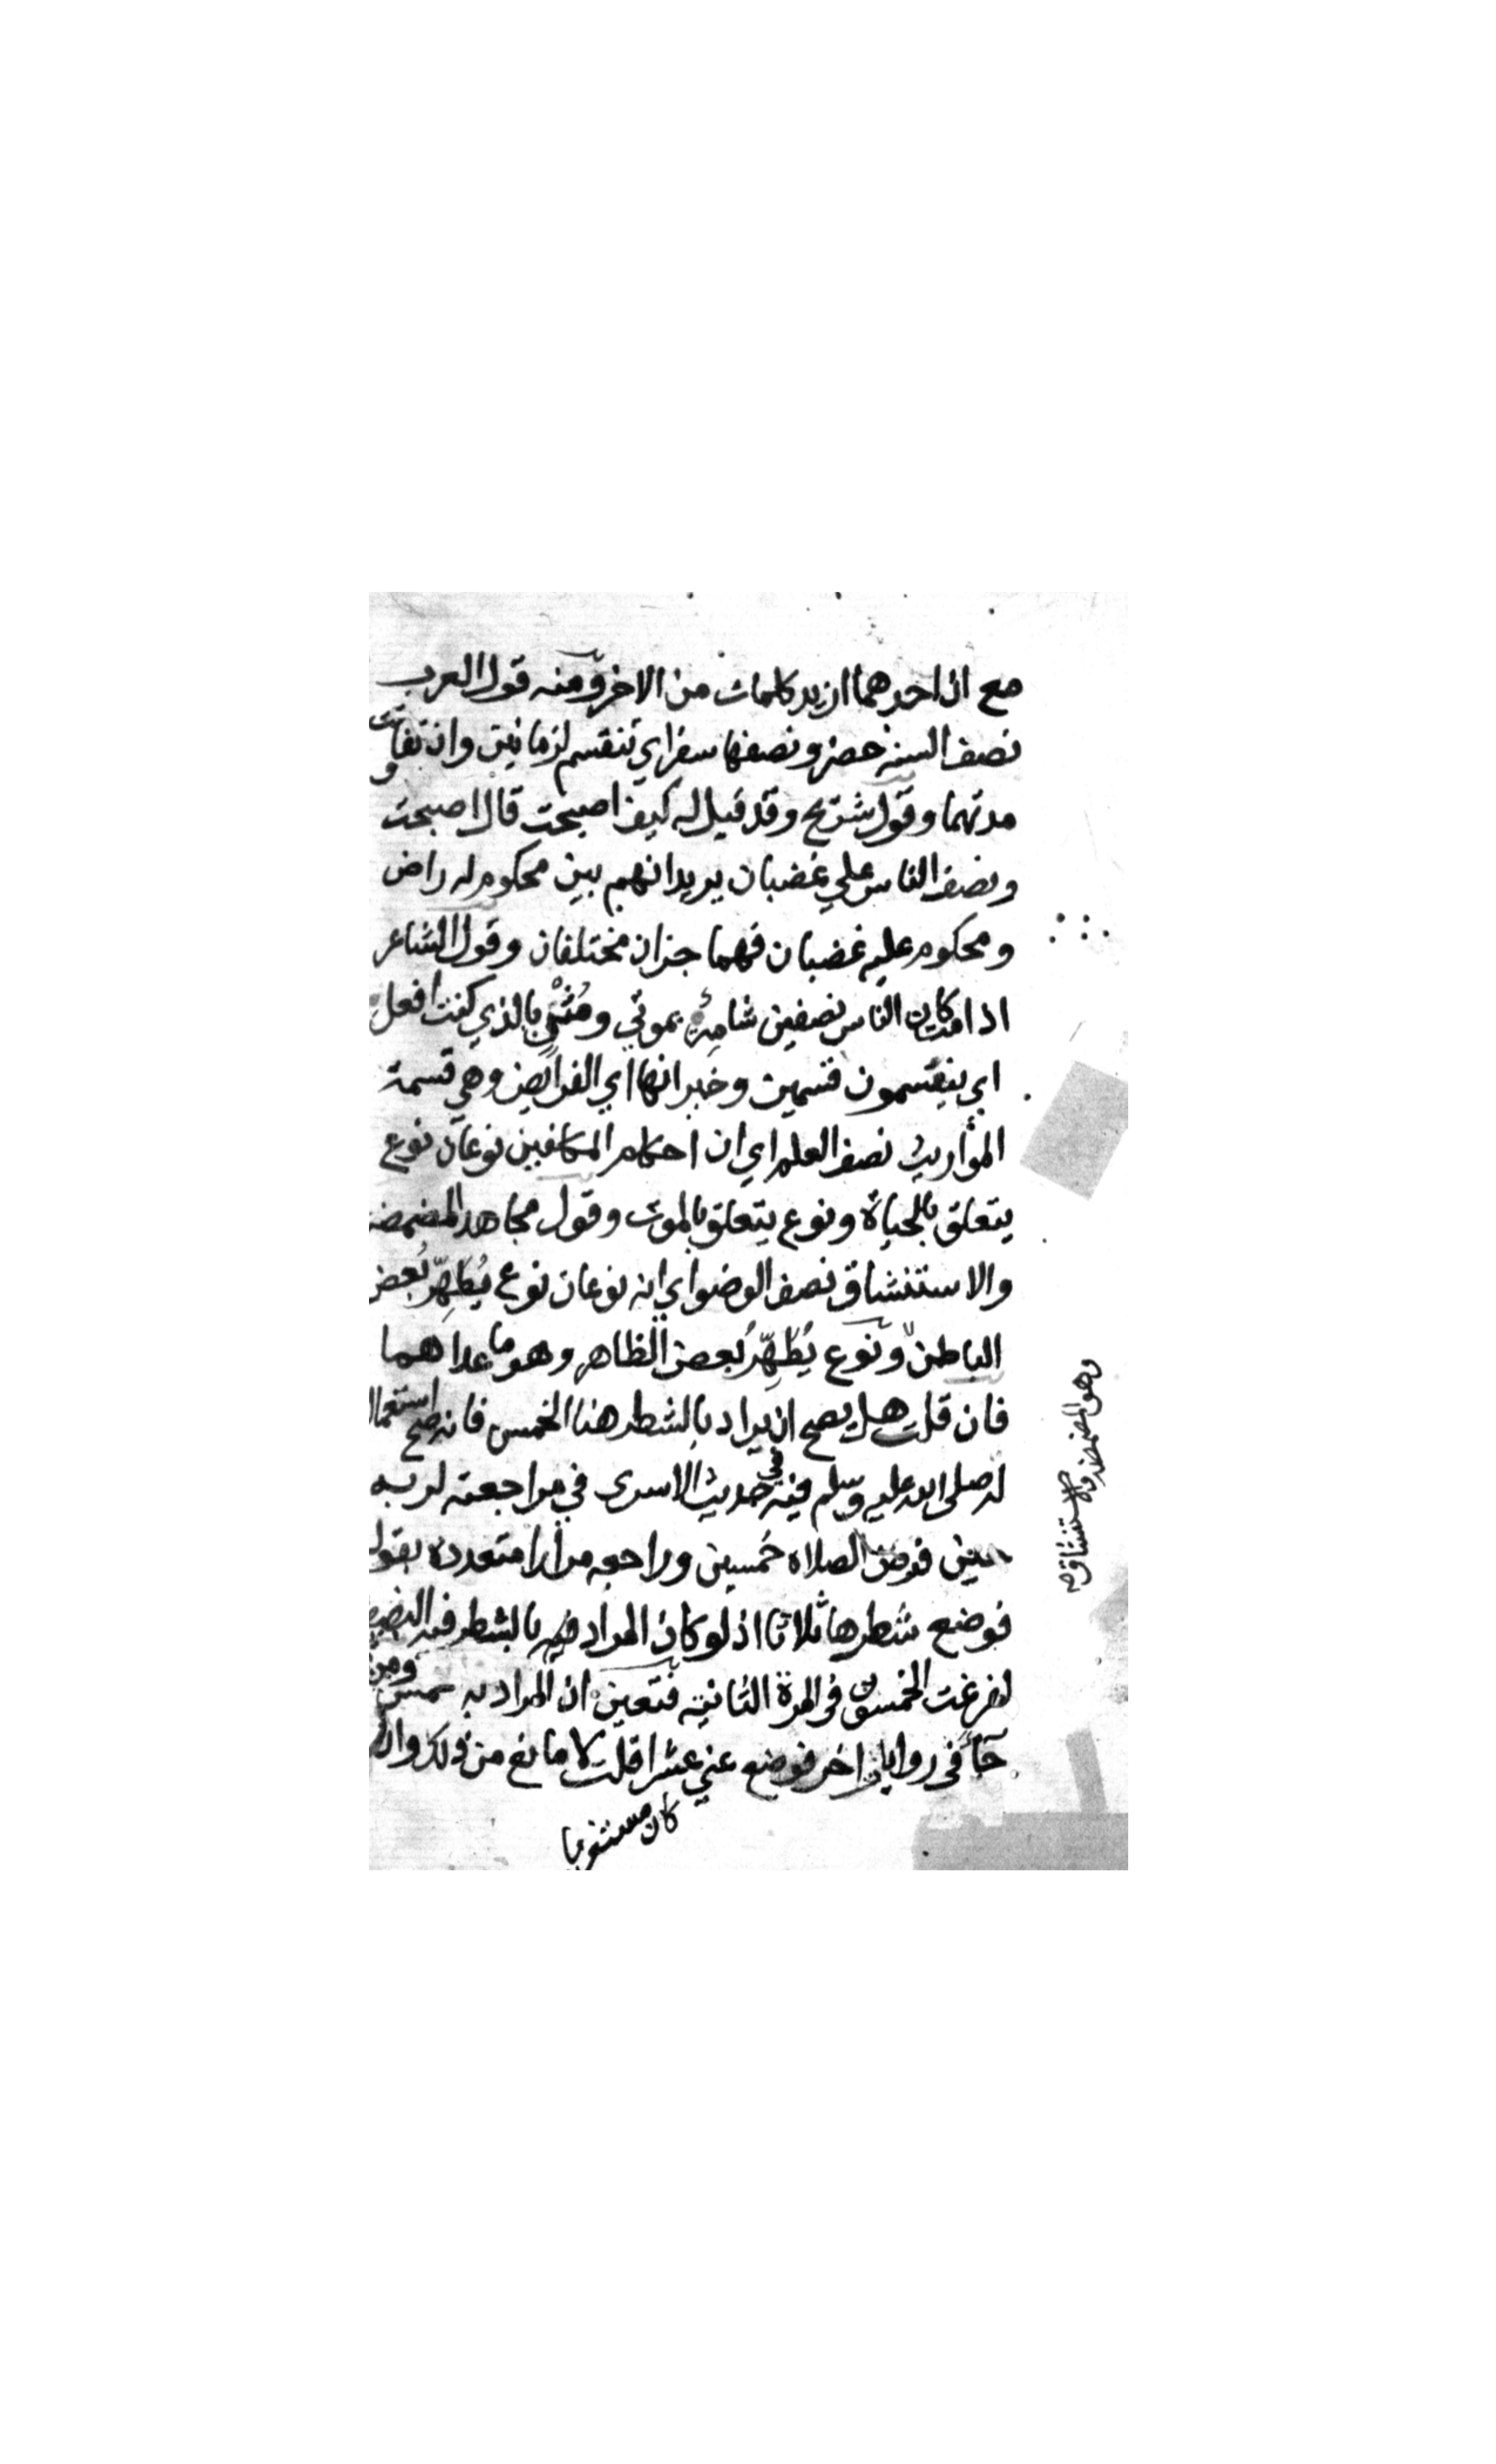 مع ان احدهما ازيد كلمات من الاخر ومنه قول العرب
نصف السنه حضر ونصفها سفر اي تنقسم لزمانين وان تفاوتت
مدتهما وقول شريح وقد قيل له كيف اصبحت قال اصبحت
ونصف الناس علي غضبان يريد انهم بين محكوم له راض
ومحكوم عليه غضبان فهما جزان مختلفان وقول الشاعر
اذا مت كان الناس نصفين شامت بموتي ومثن بالذي كنت افعل
اي ينقسمون قسمين وخبر انها اي الفرايض وهي قسمة
المواريث نصف العلم اي ان احكام المكلفين نوعان نوع
يتعلق بالحياة ونوع يتعلق بالموت وقول مجاهد المضمضه
والاستنشاق نصف الوضو اي انه نوعان نوع يُطَهِّرُ بعض
الباطن ونوع يُطَهِّرُ بعض الظاهر وهو ما عداهما
وهو المضمضه والاستنشاق صح
فان قلت هل يصح ان يراد بالشطر هنا الخمس فانه صح استعمال
له صلى الله عليه وسلم فيه في حديث الاسرى في مراجعته لربه
حين فرض الصلاه خمسين وراجعه مرارا متعدده بقوله
فوضع شطرها ثلاثا اذ لو كان المراد بالشطر فيه النصف
لفرغت الخمسون في المرة الثانيه فتعين ان المراد به خمس ومن
جآ في روايات اخر فوضع عني عشرا قلت لا مانع من ذلك وان
كان مستغربا